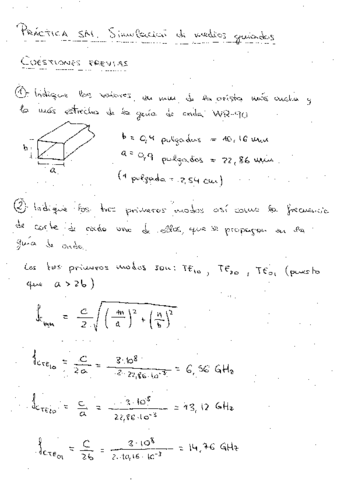 PRÁCTICA SM1. Simulación de medios guiados
CUESTIONES PREVIAS
① - Indique los valores, en mm de la arista más ancha y
la más estrecha de la guía de onda WR-90
b = 0,4 pulgadas = 10,16 mm
a = 0,9 pulgadas = 22,86 mm
(1 pulgada = 2,54 cm)
b
a
② - Indique los tres primeros modos así como la frecuencia
de corte de cada uno de ellos, que se propagan en la
guía de onda.
Los tres primeros modos son: TE₁₀, TE₂₀, TE₀₁ (puesto
que a > 2b)
f_cmn = C/2 · √((m/a)² + (n/b)²)
f_cTE₁₀ = C/2a = 3·10⁸/2·22,86·10⁻³ = 6,56 GHz
f_cTE₂₀ = C/a = 3·10⁸/22,86·10⁻³ = 13,12 GHz
f_cTE₀₁ = C/2b = 3·10⁸/2·10,16·10⁻³ = 14,76 GHz